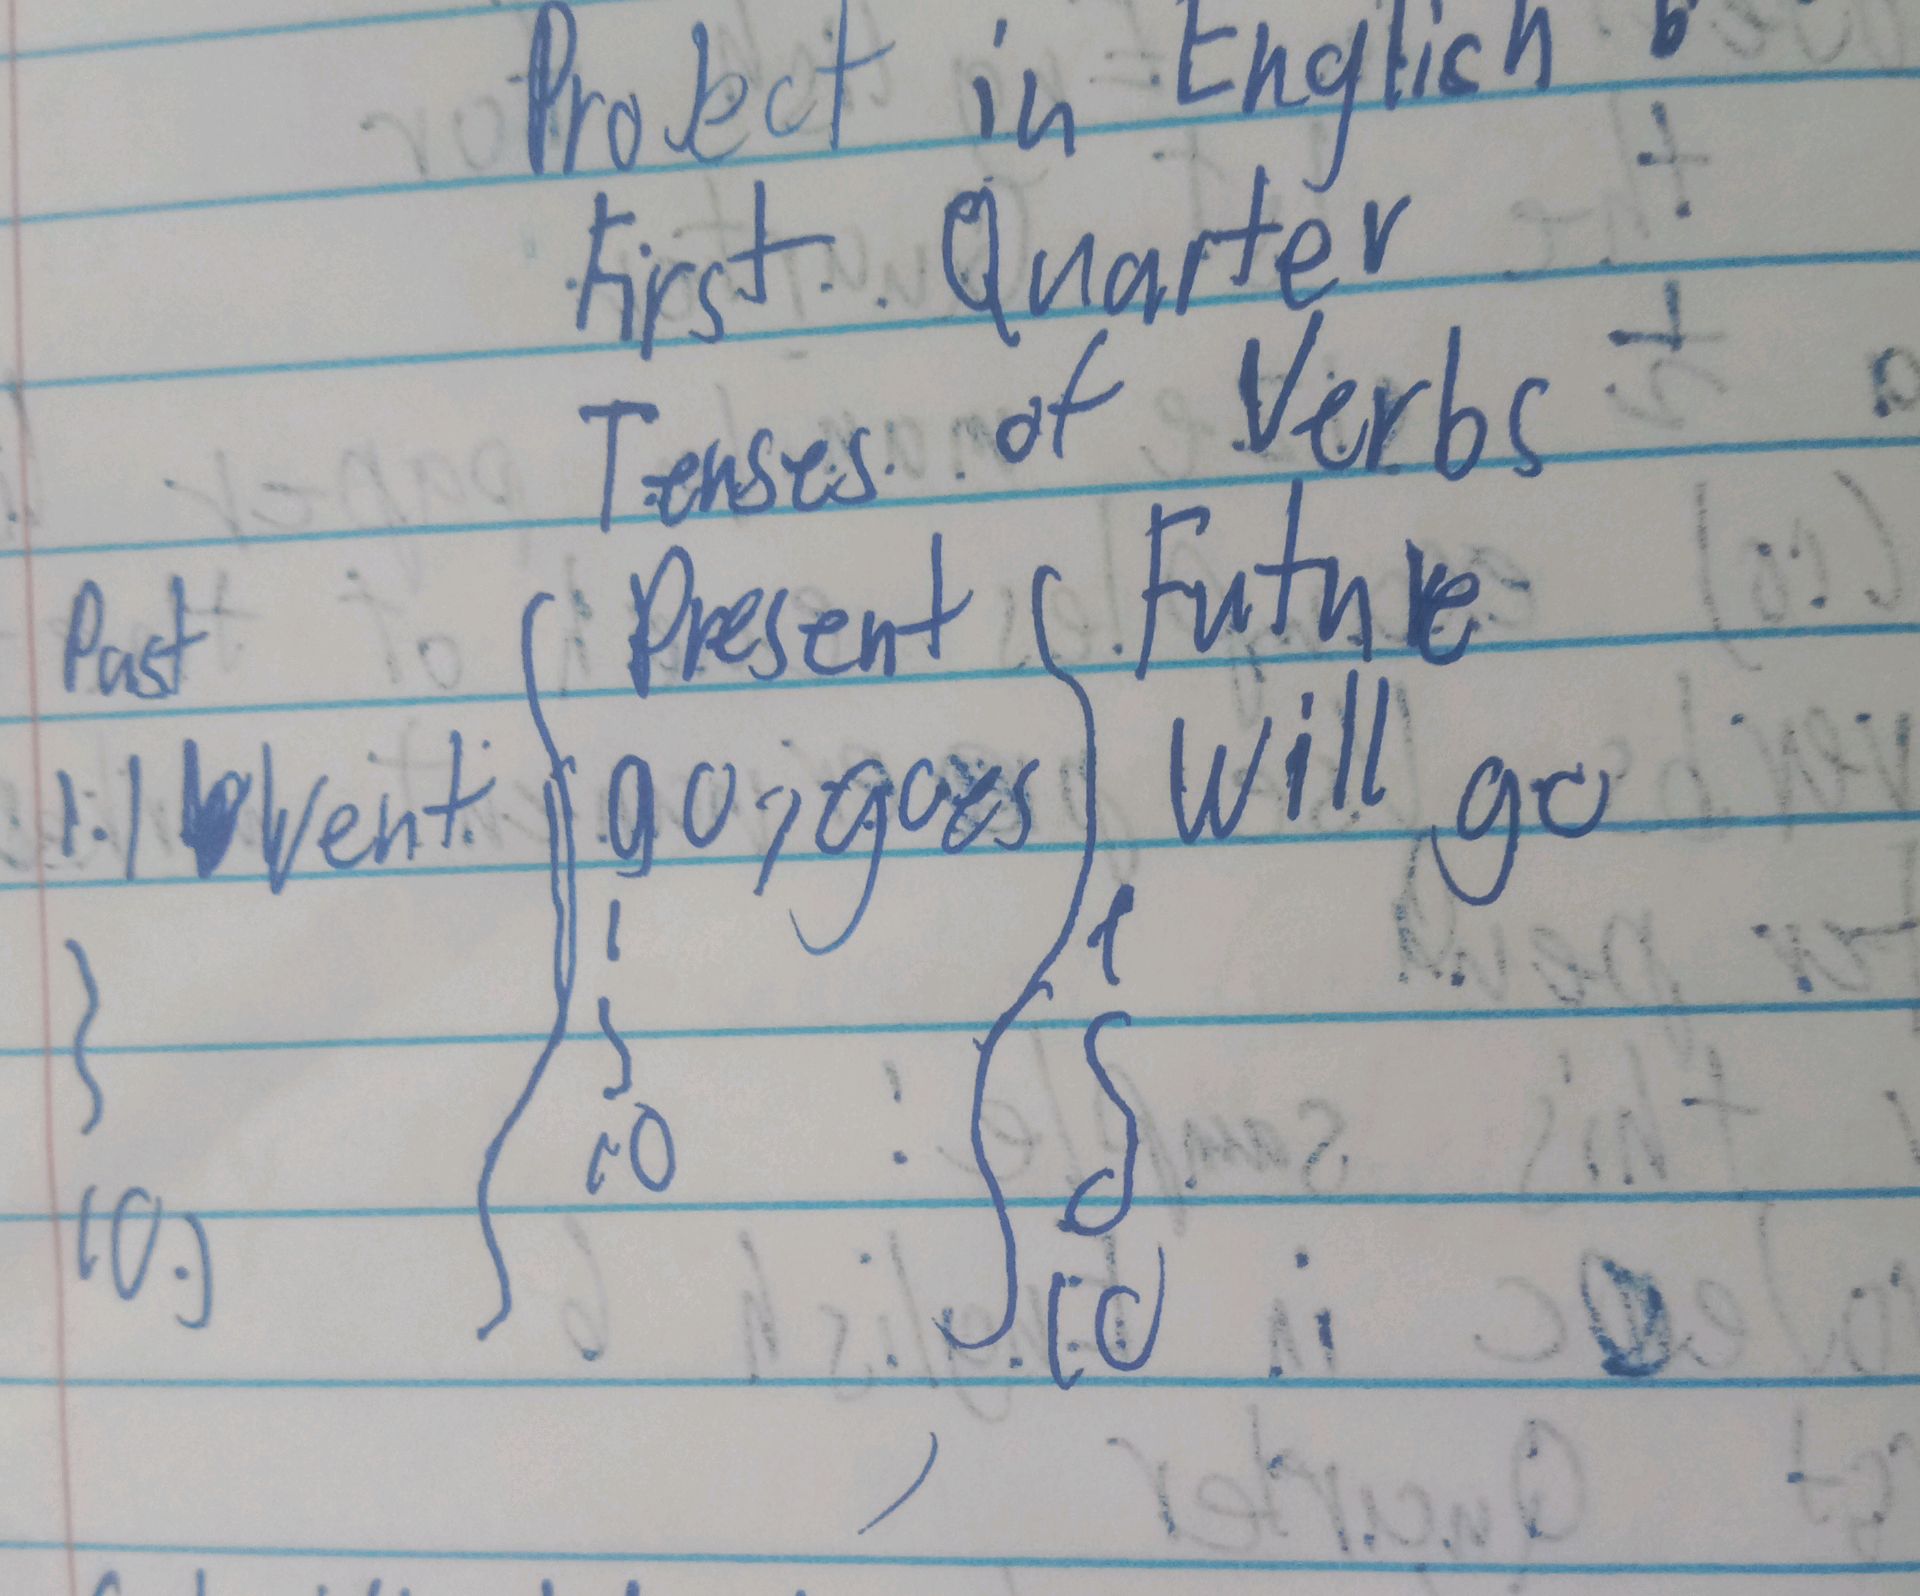 Project in English 6
First Quarter
Tenses of Verbs
Past Present Future
1. Went go, goes will go
10. 10 10